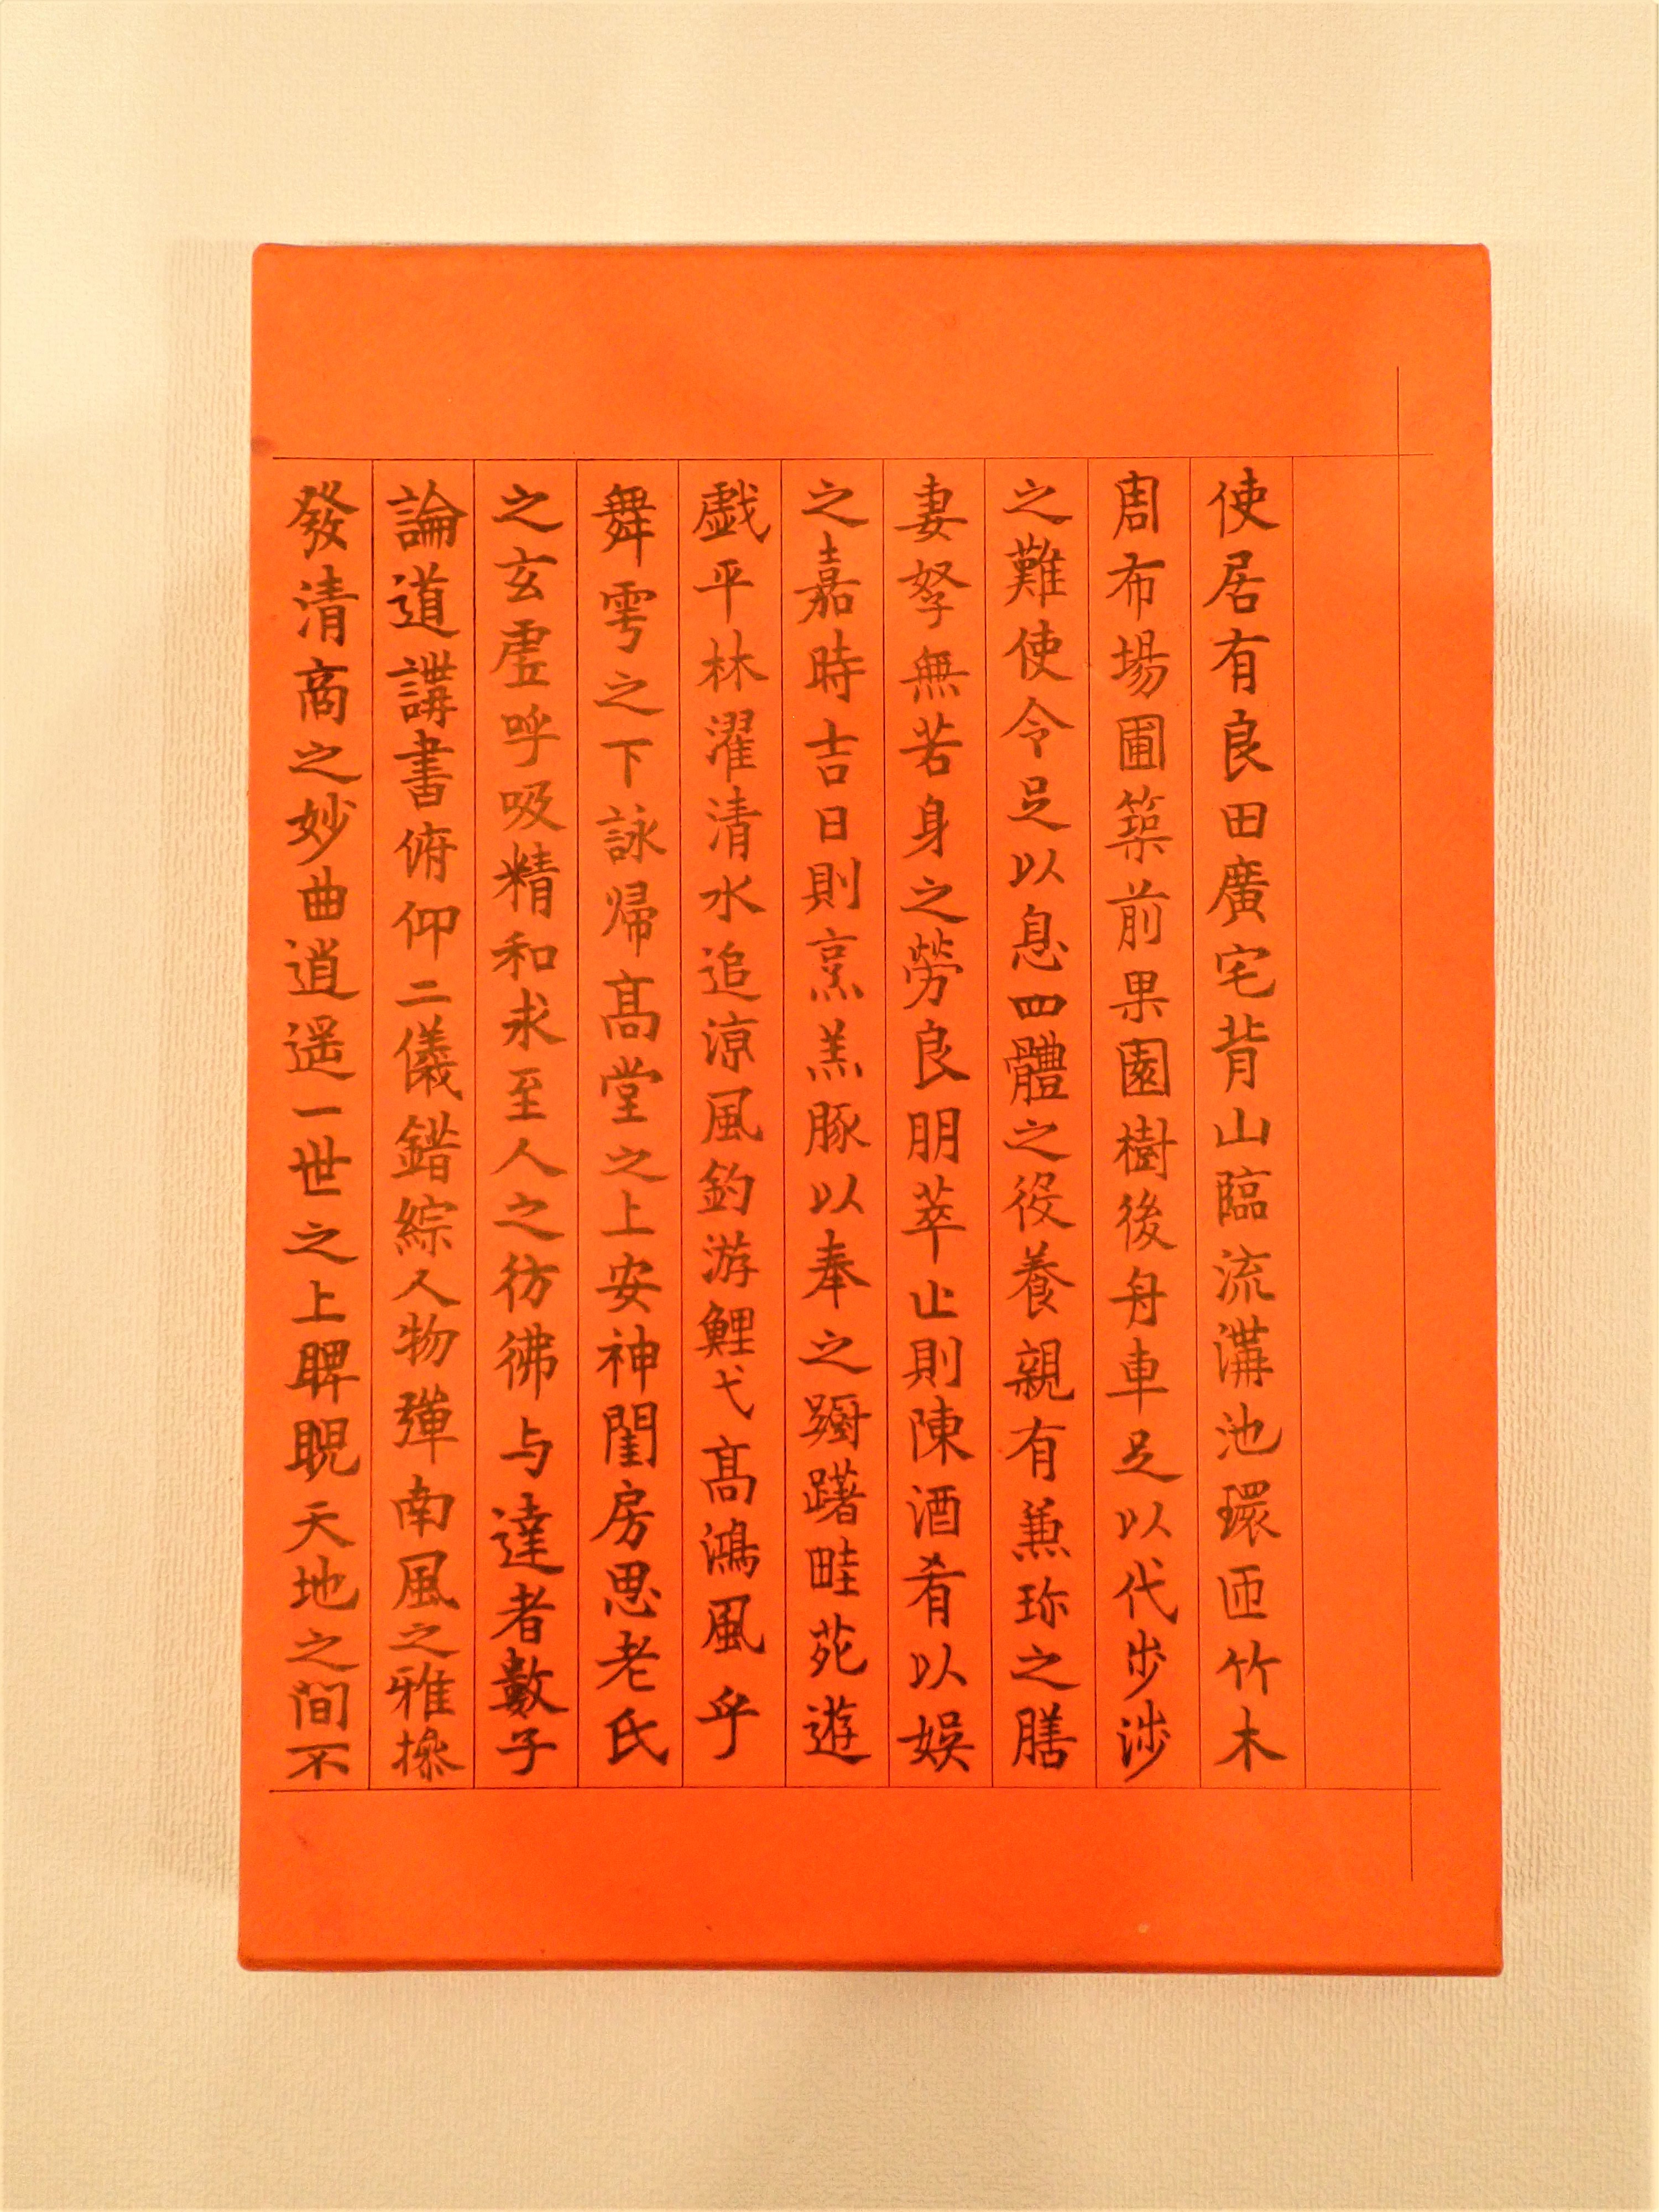 使居有良田廣宅背山臨流溝池環匝竹木
周布場圃築前果園樹後舟車足以代步涉
之難使令足以息四體之役養親有兼珎之膳
妻孥無若身之勞良朋萃止則陳酒肴以娛
之嘉時吉日則烹羔豚以奉之躕躇畦苑遊
戯平林濯清水追涼風釣游鯉弋高鴻風乎
舞雩之下詠帰髙堂之上安神閨房思老氏
之玄虛呼吸精和求至人之彷彿与達者數子
論道講書俯仰二儀錯綜人物彈南風之雅操
發清商之妙曲逍遥一世之上睥睨天地之间不